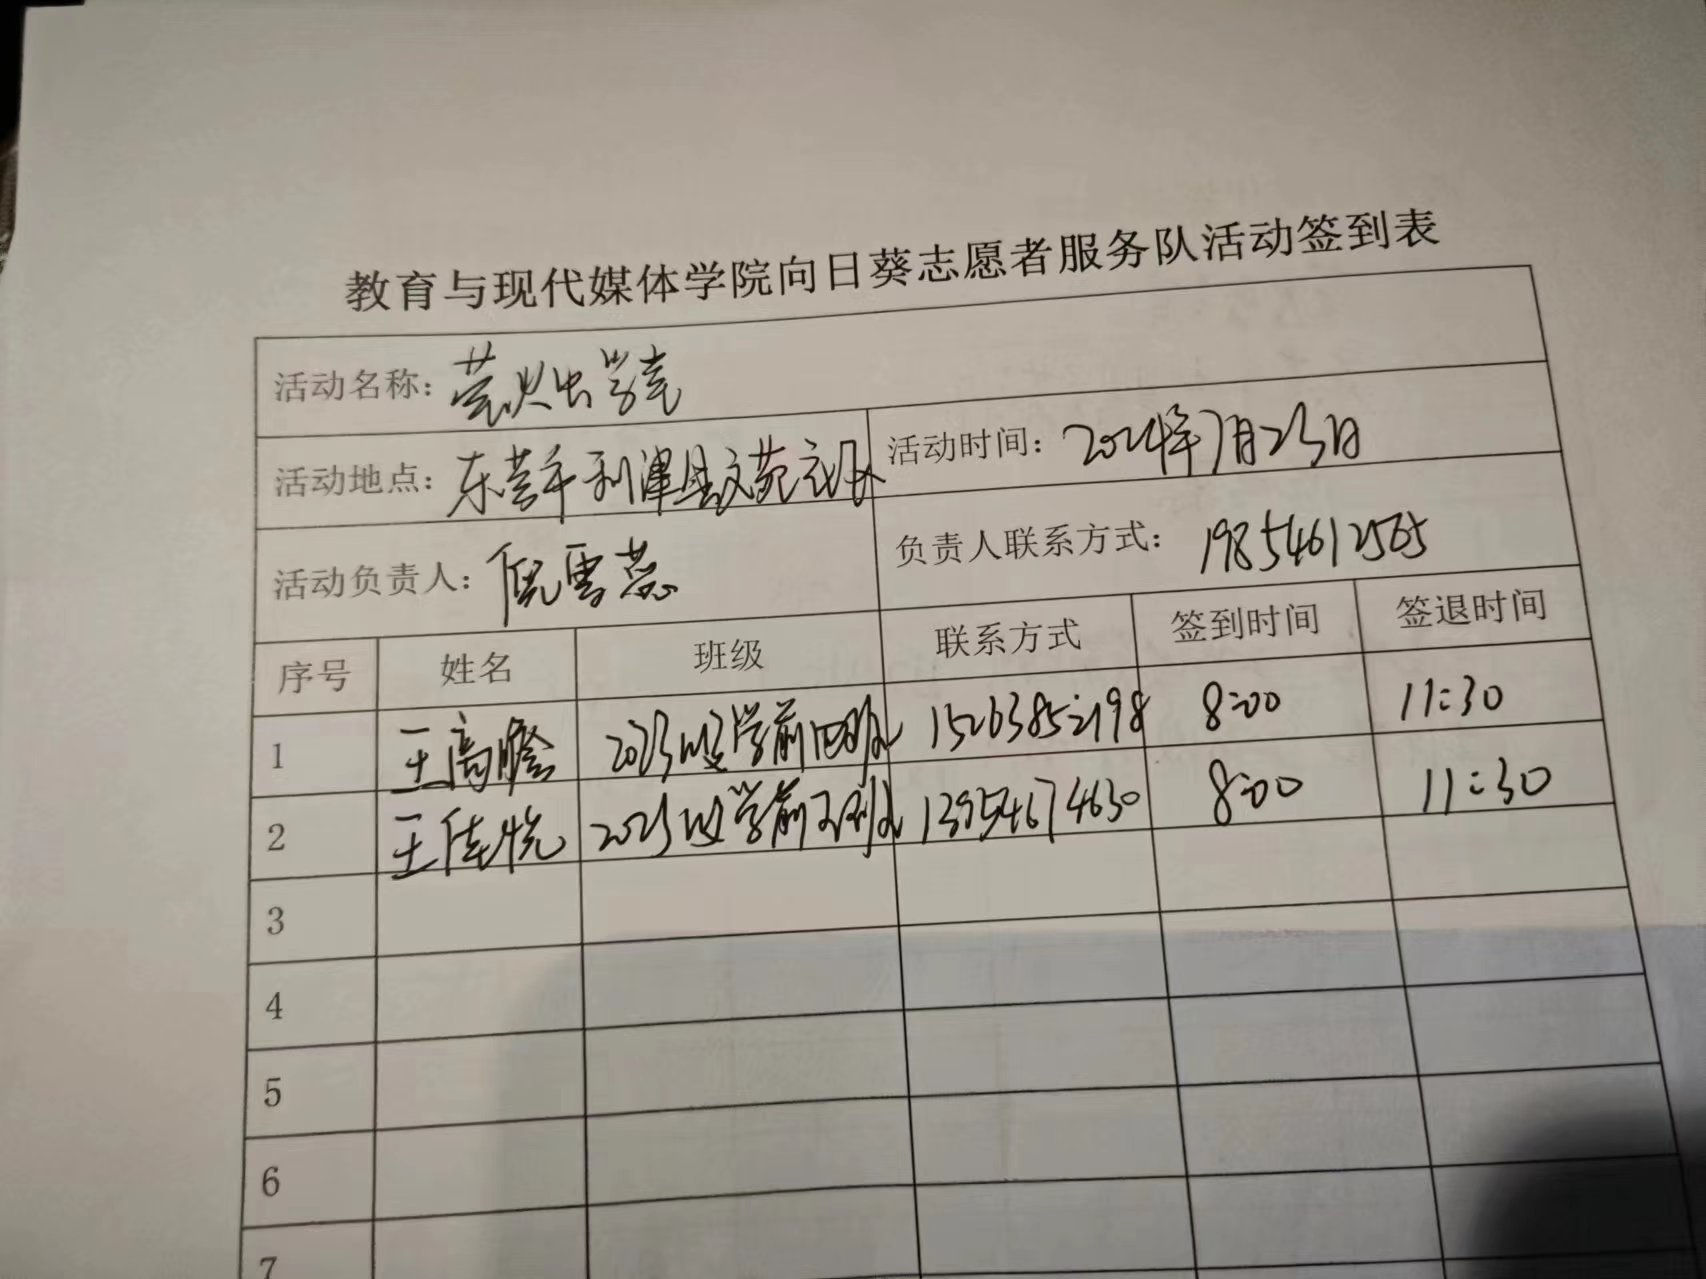 教育与现代媒体学院向日葵志愿者服务队活动签到表
活动名称：萤火虫学堂
活动地点：东营市利津县文苑社区 活动时间：2024年7月23日
活动负责人：倪雪蕊 负责人联系方式：19854612565
序号 姓名 班级 联系方式 签到时间 签退时间
1 王高瞻 2023级学前四班 15263852198 8:00 11:30
2 王佳悦 2023级学前五班 13954674630 8:00 11:30
3
4
5
6
7